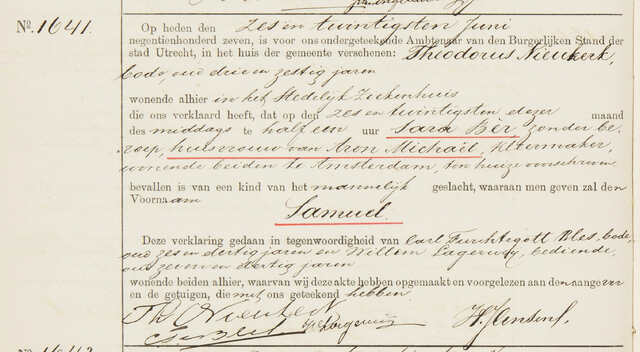 No. 1641.
Op heden den zes en twintigsten Juni
negentienhonderd zeven, is voor ons ondergeteekende Ambtenaar van den Burgerlijken Stand der
stad Utrecht, in het huis der gemeente verschenen: Theodorus Nieukerk,
bode, oud drie en zestig jaren
wonende alhier in het Stedelijk Ziekenhuis
die ons verklaard heeft, dat op den zes en twintigsten dezer maand
des middags te half een uur Sara Bèr, zonder be-
roep, huisvrouw van Aron Michaël, kleermaker,
wonende beiden te Amsterdam, ten huize voorschreven
bevallen is van een kind van het mannelijk geslacht, waaraan men geven zal den
Voornaam
Samuel.
Deze verklaring gedaan in tegenwoordigheid van Carl Furchtigott Bles, bode,
oud zes en dertig jaren en Willem Lagerwij, bediende,
oud zeven en dertig jaren
wonende beiden alhier, waarvan wij deze akte hebben opgemaakt en voorgelezen aan den aangever
en de getuigen, die met ons geteekend hebben.
Th Nieukerk
C F Bles W Lagerwij H Jensen